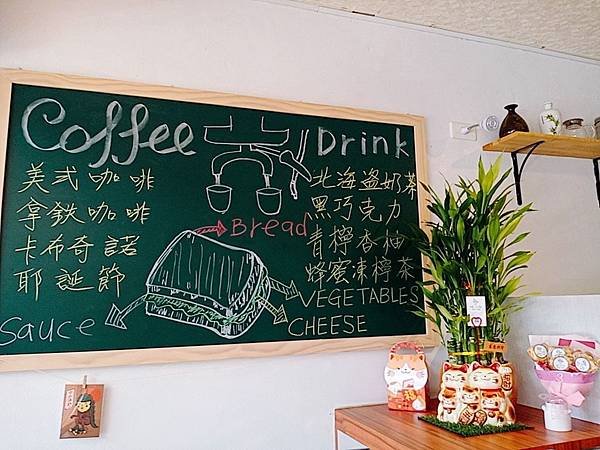 Coffee
美式咖啡
拿鉄咖啡
卡布奇諾
耶誕節
Drink
北海盜奶茶
黑巧克力
青檸香柚
蜂蜜凍檸茶
Bread
VEGETABLES
CHEESE
Sauce